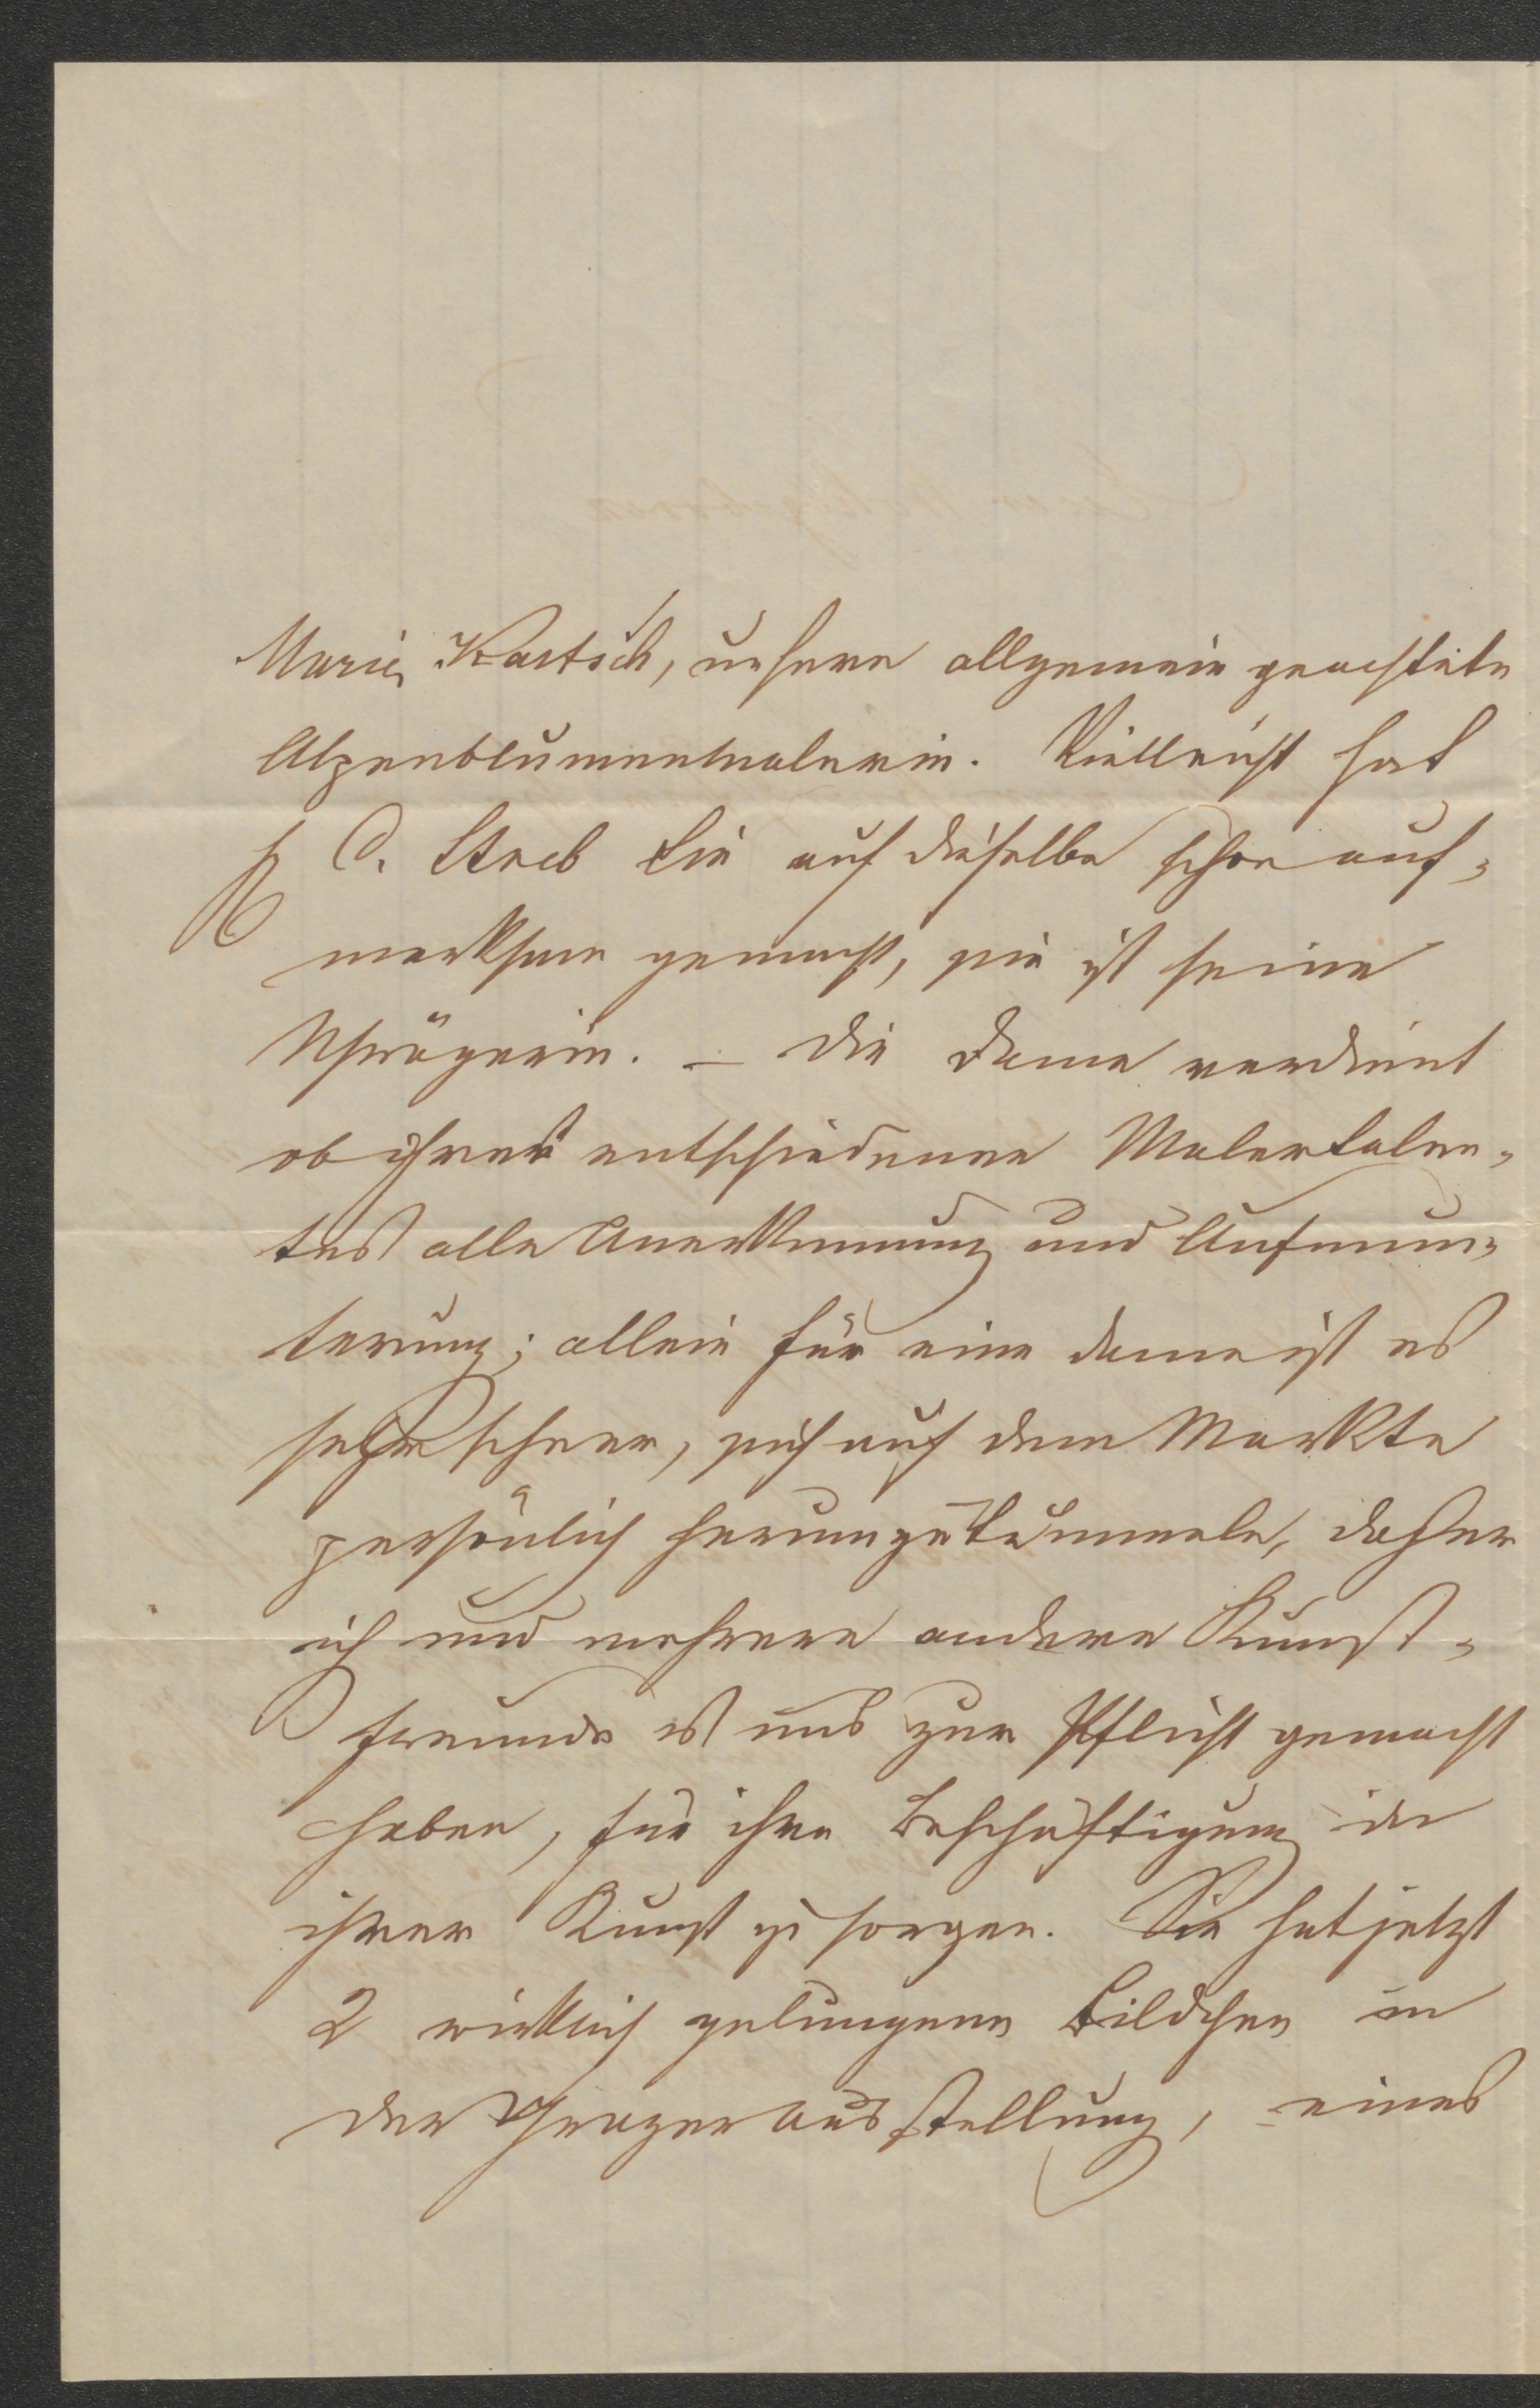 Marie Kartsch, unsere allgemein geachtete
Alpenblumenmalerin. Vielleicht hat
H. C. Streb Sie auf dieselbe schon auf-
merksam gemacht, sie ist seine
Schwägerin. – Die Dame verdient
ob ihres entschiedenen Malertalen-
tes alle Anerkennung und Aufmun-
terung; allein für eine Dame ist es
sehr schwer, sich auf dem Markte
persönlich herumzutummeln, daher
ich und mehrere andere Kunst-
freunde es uns zur Pflicht gemacht
haben, für ihre Beschäftigung in
ihrer Kunst zu sorgen. Sie hat jetzt
2 wirklich gelungene Bildchen in
der Grazer Ausstellung, eines